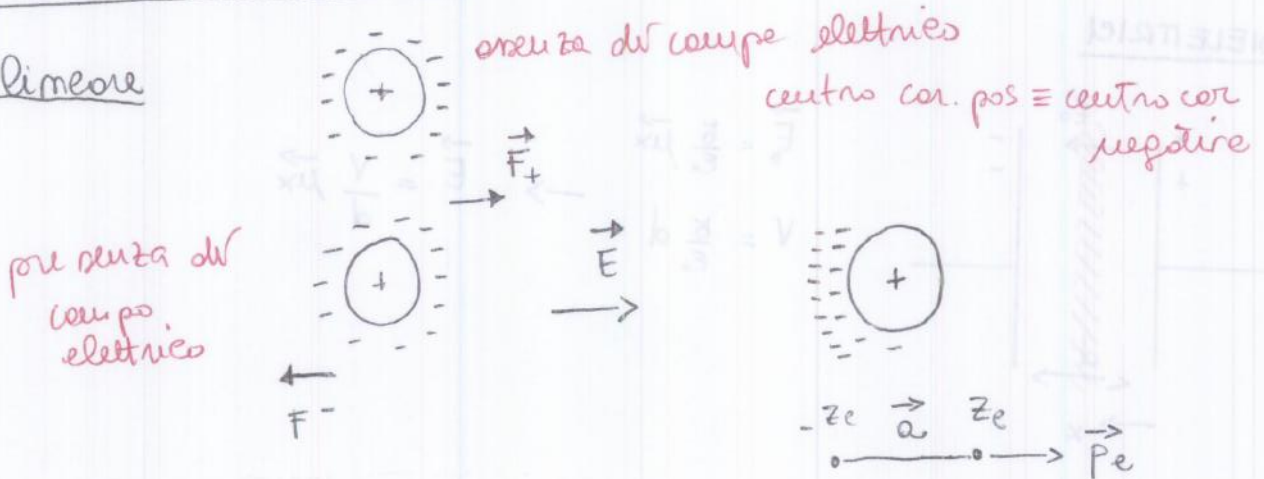 lineare
assenza di campo elettrico
centro car. pos ≡ centro car
negative
+
F₊
presenza di
campo
elettrico
+
E
+
F⁻
-Ze a Ze
pe